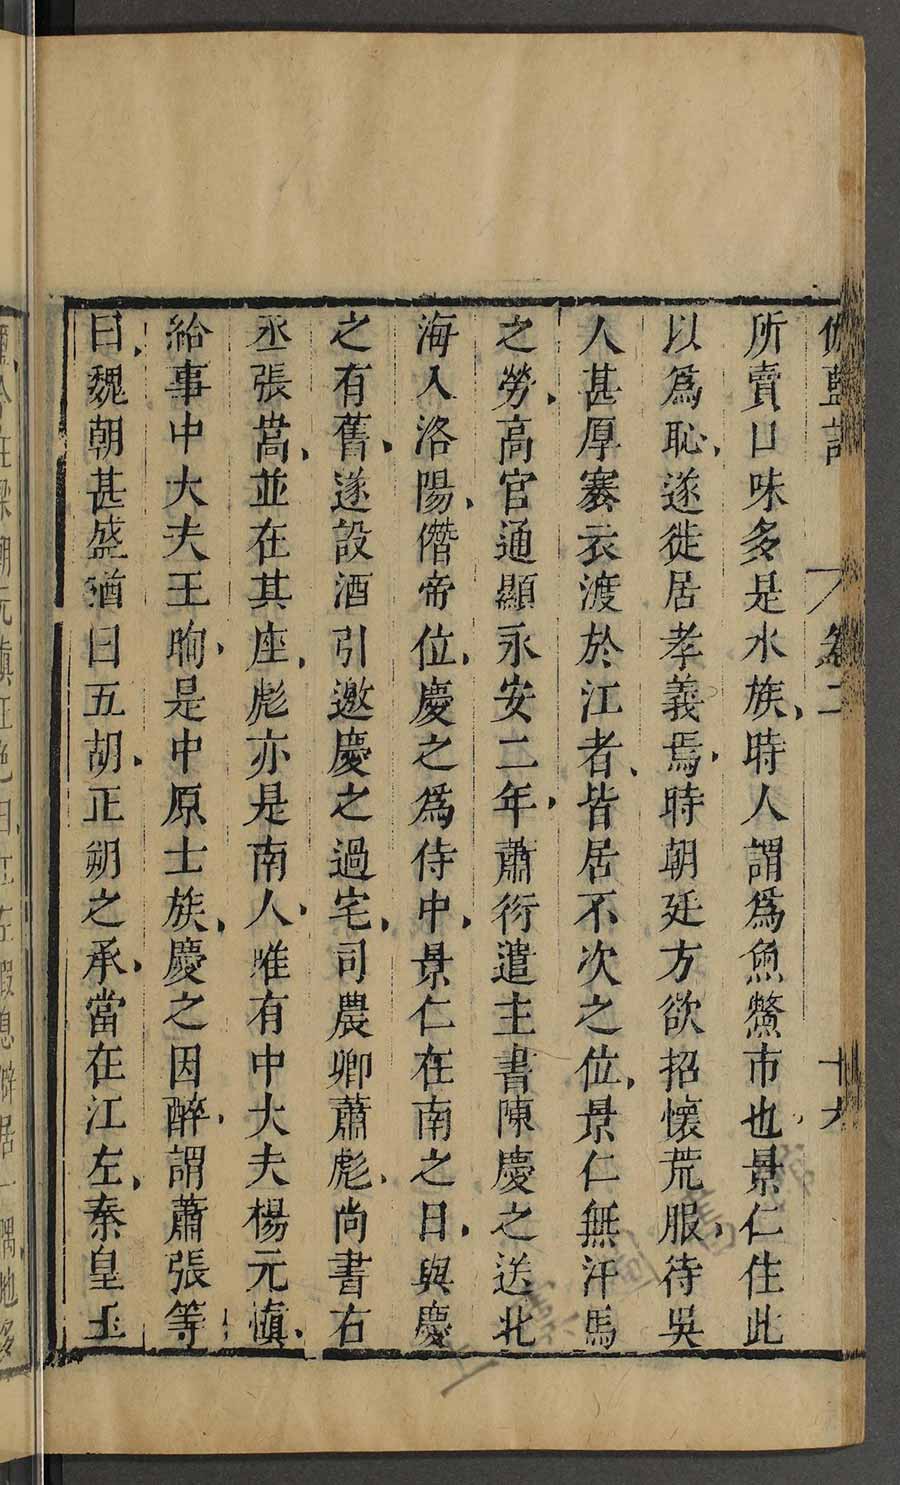 伽藍記 卷二 十六
所賣口味多是水族時人謂爲魚鱉市也景仁住此
以爲恥遂徙居孝義焉時朝廷方欲招懷荒服待吳
人甚厚褰衣渡於江者皆居不次之位景仁無汗馬
之勞高官通顯永安二年蕭衍遣主書陳慶之送北
海入洛陽僭帝位慶之爲侍中景仁在南之日與慶
之有舊遂設酒引邀慶之過宅司農卿蕭彪尚書右
丞張嵩並在其座彪亦是南人唯有中大夫楊元愼
給事中大夫王眴是中原士族慶之因醉謂蕭張等
曰魏朝甚盛猶曰五胡正朔之承當在江左秦皇玉